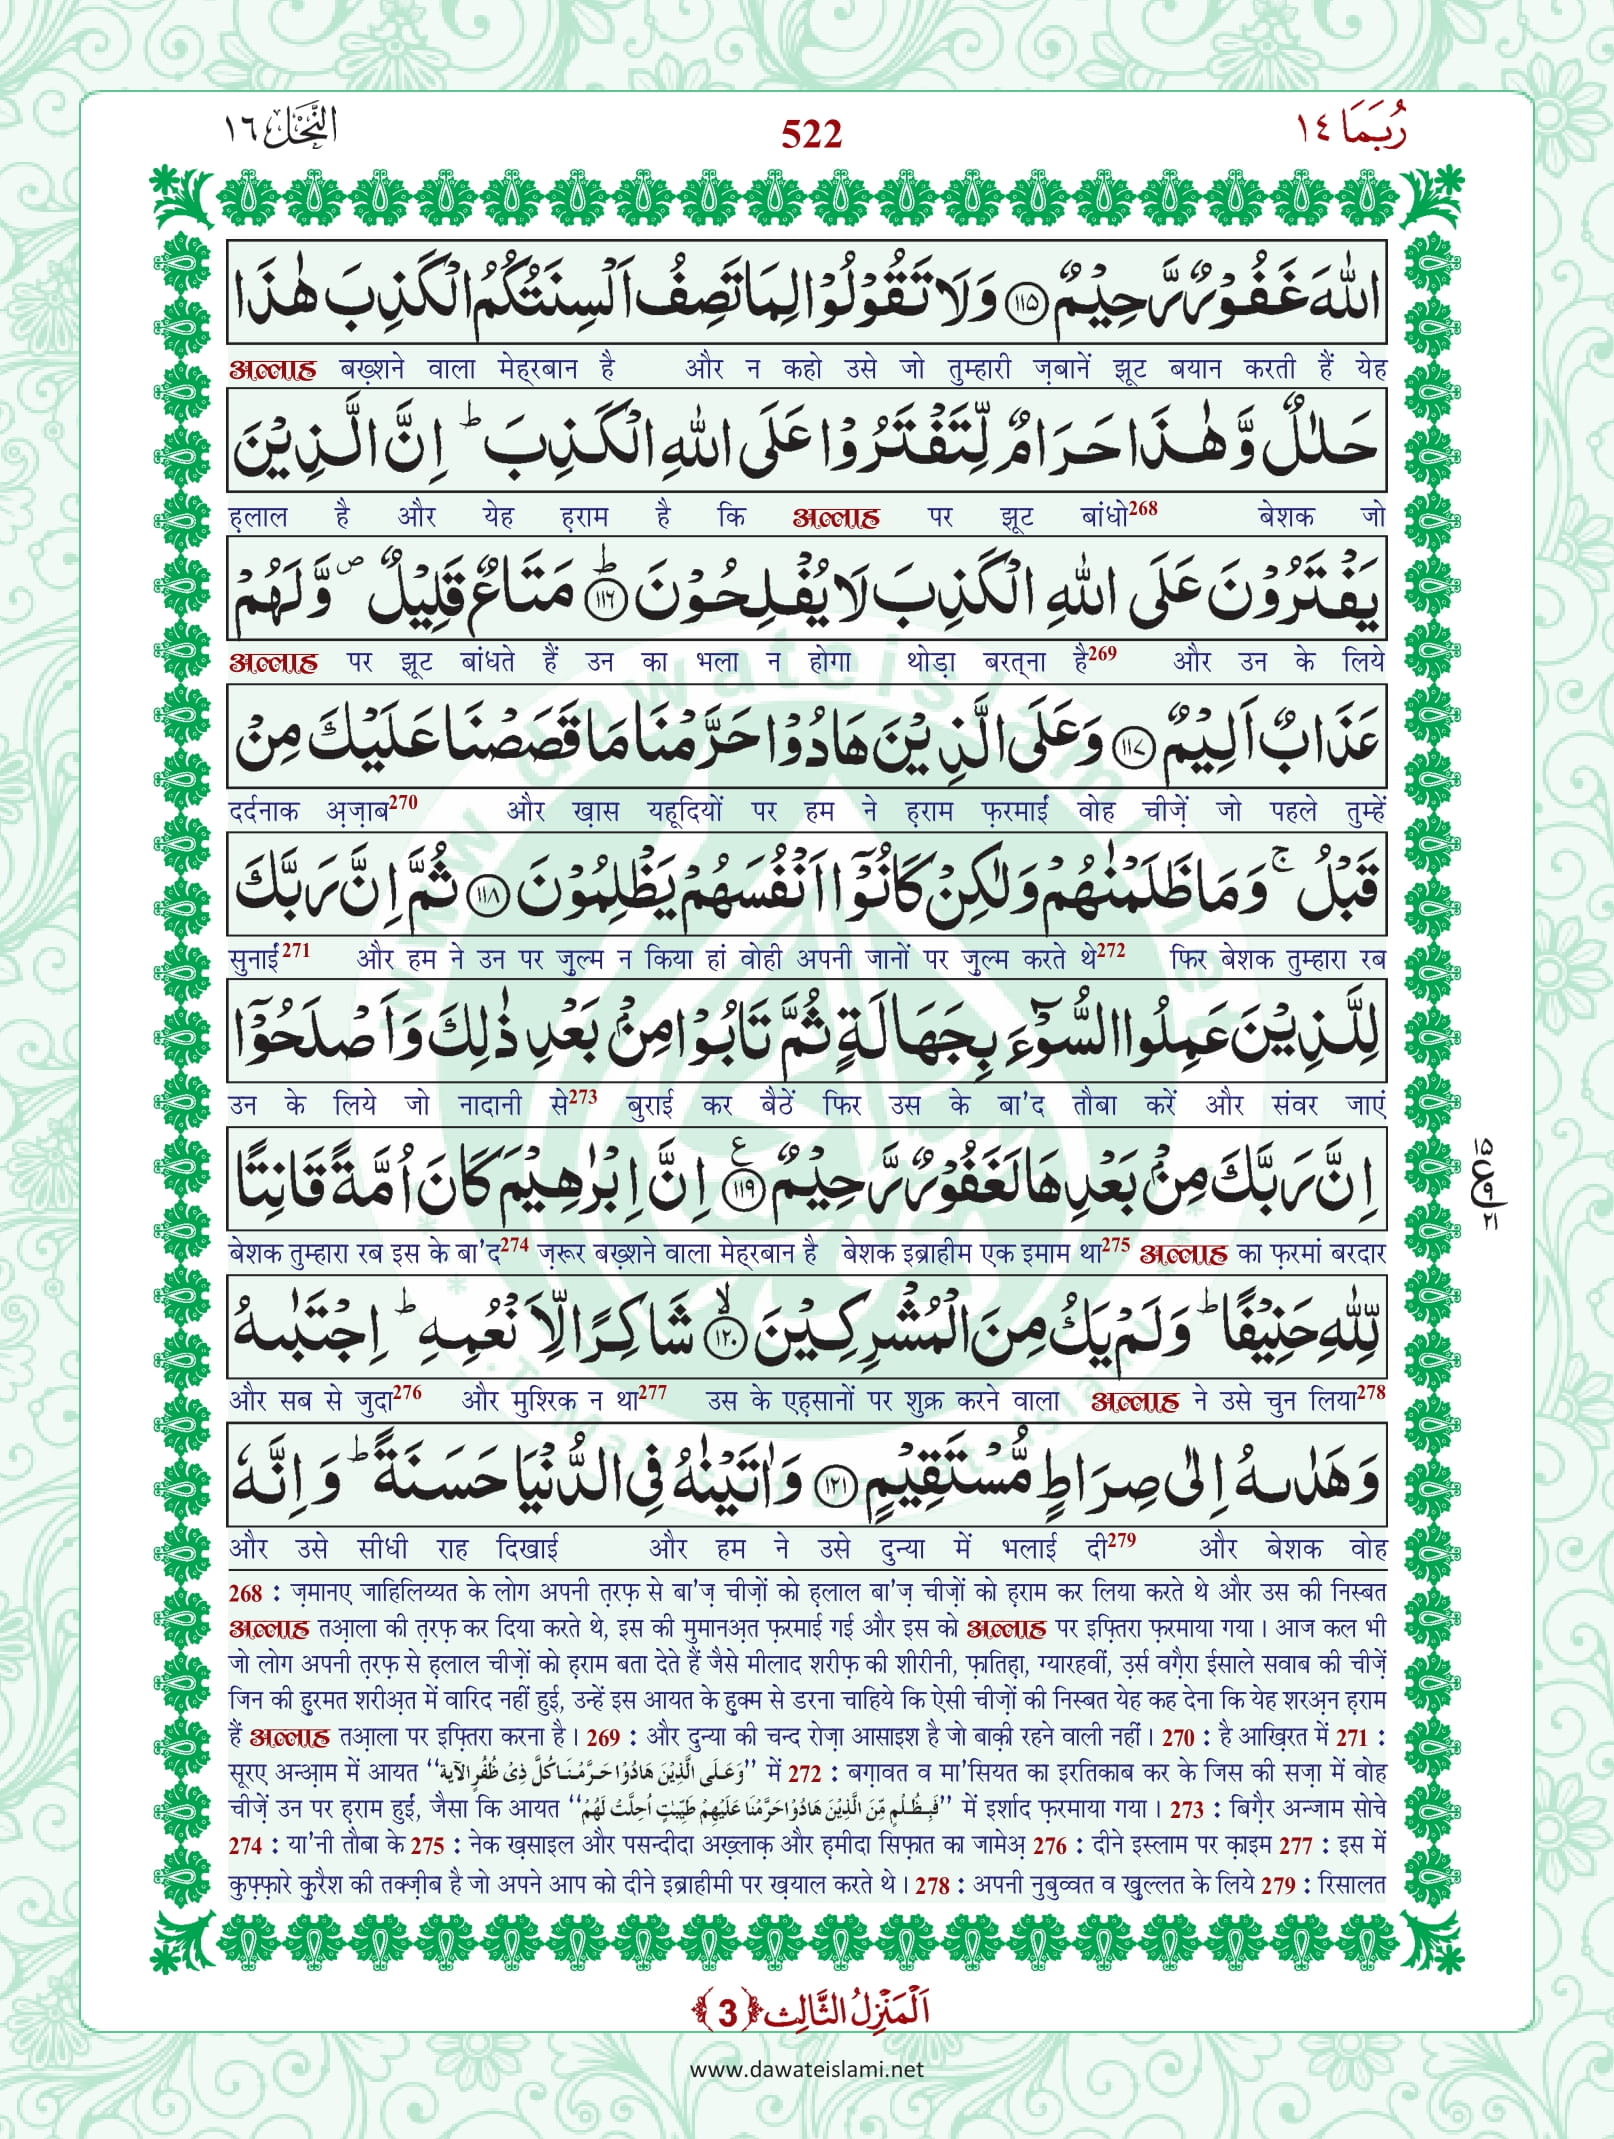 النَّحۡل ١٦
522
رُبَمَا ١٤
اللّٰهَ غَفُوۡرٌ رَّحِیۡمٌ ﴿۱۱۵﴾ وَلَا تَقُوۡلُوۡا لِمَا تَصِفُ اَلۡسِنَتُکُمُ الۡکَذِبَ هٰذَا
अल्लाह बख़्शने वाला मेहरबान है और न कहो उसे जो तुम्हारी ज़बानें झूट बयान करती हैं येह
حَلٰلٌ وَّهٰذَا حَرَامٌ لِّتَفۡتَرُوۡا عَلَی اللّٰهِ الۡکَذِبَ ؕ اِنَّ الَّذِیۡنَ
ह़लाल है और येह ह़राम है कि अल्लाह पर झूट बांधो268 बेशक जो
یَفۡتَرُوۡنَ عَلَی اللّٰهِ الۡکَذِبَ لَا یُفۡلِحُوۡنَ ﴿۱۱۶﴾ؕ مَتَاعٌ قَلِیۡلٌ ۪ وَّلَهُمۡ
अल्लाह पर झूट बांधते हैं उन का भला न होगा थोड़ा बरत्ना है269 और उन के लिये
عَذَابٌ اَلِیۡمٌ ﴿۱۱۷﴾ وَعَلَی الَّذِیۡنَ هَادُوۡا حَرَّمۡنَا مَا قَصَصۡنَا عَلَیۡكَ مِنۡ
दर्दनाक अ़ज़ाब270 और ख़ास यहूदियों पर हम ने ह़राम फ़रमाईं वोह चीज़ें जो पहले तुम्हें
قَبۡلُ ۚ وَمَا ظَلَمۡنٰهُمۡ وَلٰکِنۡ کَانُوۡۤا اَنۡفُسَهُمۡ یَظۡلِمُوۡنَ ﴿۱۱۸﴾ ثُمَّ اِنَّ رَبَّكَ
सुनाईं271 और हम ने उन पर ज़ुल्म न किया हां वोही अपनी जानों पर ज़ुल्म करते थे272 फिर बेशक तुम्हारा रब
لِلَّذِیۡنَ عَمِلُوا السُّوۡٓءَ بِجَهَالَةٍ ثُمَّ تَابُوۡا مِنۡۢ بَعۡدِ ذٰلِكَ وَاَصۡلَحُوۡۤا
उन के लिये जो नादानी से273 बुराई कर बैठें फिर उस के बा'द तौबा करें और संवर जाएं
اِنَّ رَبَّكَ مِنۡۢ بَعۡدِهَا لَغَفُوۡرٌ رَّحِیۡمٌ ﴿۱۱۹﴾ اِنَّ اِبۡرٰهِیۡمَ کَانَ اُمَّةً قَانِتًا
ع ۱۵ ۹ ۲۱
बेशक तुम्हारा रब इस के बा'द274 ज़रूर बख़्शने वाला मेह्रबान है बेशक इब्राहीम एक इमाम था275 अल्लाह का फ़रमां बरदार
لِّلّٰهِ حَنِیۡفًا ؕ وَلَمۡ یَكُ مِنَ الۡمُشۡرِکِیۡنَ ﴿۱۲۰﴾ۙ شَاکِرًا لِّاَنۡعُمِهٖ ؕ اِجۡتَبٰىهُ
और सब से जुदा276 और मुश्रिक न था277 उस के एह़सानों पर शुक्र करने वाला अल्लाह ने उसे चुन लिया278
وَهَدٰىهُ اِلٰی صِرَاطٍ مُّسۡتَقِیۡمٍ ﴿۱۲۱﴾ وَاٰتَیۡنٰهُ فِی الدُّنۡیَا حَسَنَةً ؕ وَاِنَّهٗ
और उसे सीधी राह दिखाई और हम ने उसे दुन्या में भलाई दी279 और बेशक वोह
268 : ज़मानए जाहिलिय्यत के लोग अपनी त़रफ़ से बा'ज़ चीज़ों को ह़लाल बा'ज़ चीज़ों को ह़राम कर लिया करते थे और उस की निस्बत
अल्लाह तआ़ला की त़रफ़ कर दिया करते थे, इस की मुमानअ़त फ़रमाई गई और इस को अल्लाह पर इफ़्तिरा फ़रमाया गया। आज कल भी
जो लोग अपनी त़रफ़ से ह़लाल चीज़ों को ह़राम बता देते हैं जैसे मीलाद शरीफ़ की शीरीनी, फ़ातिह़ा, ग्यारहवीं, उ़र्स वग़ैरा ईसाले सवाब की चीज़ें
जिन की हु़रमत शरीअ़त में वारिद नहीं हुई, उन्हें इस आयत के हु़क्म से डरना चाहिये कि ऐसी चीज़ों की निस्बत येह कह देना कि येह शरअ़न ह़राम
हैं अल्लाह तआ़ला पर इफ़्तिरा करना है। 269 : और दुन्या की चन्द रोज़ा आसाइश है जो बाक़ी रहने वाली नहीं। 270 : है आख़िरत में 271 :
सूरए अन्आ़म में आयत ‘‘وَعَلَی الَّذِیۡنَ هَادُوۡا حَرَّمۡنَا کُلَّ ذِیۡ ظُفُرٍ الآیة’’ में 272 : बग़ावत व मा'सियत का इरतिकाब कर के जिस की सज़ा में वोह
चीज़ें उन पर ह़राम हुईं, जैसा कि आयत ‘‘فَبِظُلۡمٍ مِّنَ الَّذِیۡنَ هَادُوۡا حَرَّمۡنَا عَلَیۡهِمۡ طَیِّبٰتٍ اُحِلَّتۡ لَهُمۡ’’ में इर्शाद फ़रमाया गया। 273 : बिग़ैर अन्जाम सोचे
274 : या'नी तौबा के 275 : नेक ख़साइल और पसन्दीदा अख़्लाक़ और ह़मीदा सिफ़ात का जामेअ़ 276 : दीने इस्लाम पर क़ाइम 277 : इस में
कुफ़्फ़ारे क़ुरैश की तक्ज़ीब है जो अपने आप को दीने इब्राहीमी पर ख़याल करते थे। 278 : अपनी नुबुव्वत व ख़ुल्लत के लिये 279 : रिसालत
اَلۡمَنۡزِلُ الثَّالِث ﴿3﴾
www.dawateislami.net